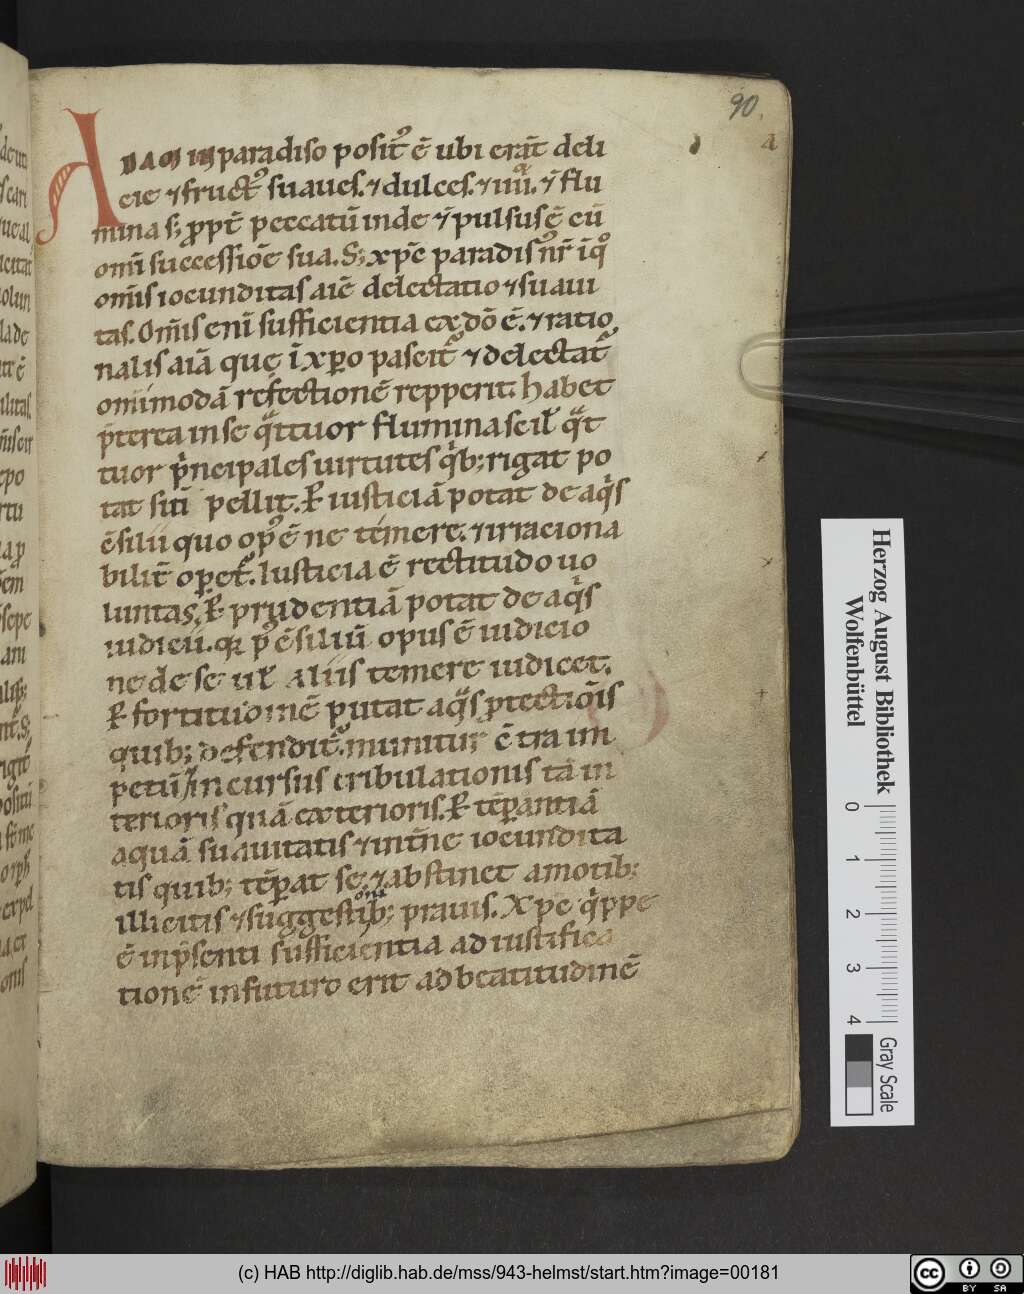 90.
a
ADAM in paradiso posit᾿ ē ubi erāt deli
cie ⁊ fruct᾿ suaues. ⁊ dulces. ⁊ iiii. ⁊ flu
mina s; ꝓpt̄ peccatū inde ⁊pulsus ē cū
om̄i successiōe sua. S; xp̄c paradis᾿ nr̄ īq᾿
om̄is iocunditas aīe delectatio ⁊ suaui
tas. Om̄is enī sufficientia ex dō ē. ⁊ ratio
nalis aīa que ī xp̄o pascit᾿ ⁊ delectat᾿
omīmodā refectionē repperit. habet
p̄terea in se qͣttuor flumina scil̄ qͣt
tuor pͥncipales uirtutes qͥb; rigat po
tat sitī pellit. Ꝑ iusticiā potat de aqͥs
ɔ̄silii quo op᾿ ē ne temere. ⁊ irraciona
bilit̄ oꝑet᾿. Iusticia ē rectitudo uo
luntas. Ꝑ prudentiā potat de aqͥs
iudicii. qꝛ p̄ ɔ̄siliū opus ē iudicio
ne de se ul̄ aliis temere iudicet.
Ꝑ fortitudinē putat aqͣs ꝓtectiōis
quib; defendit᾿. munitur ɔ̄tra im
petū / incursus tribulationis tā in
terioris quā exterioris. Ꝑ tēꝑantiā
aquā suauitatis ⁊ int̄ne iocundita
tis quib; tēꝑat se. ⁊ abstinet a motib;
illicitis ⁊ suggestiōnib; prauis. Xp̄c qͥppe
ē in p̄senti sufficientia ad iustifica
tionē in futuro erit ad beatitudinē
Herzog August Bibliothek
Wolfenbüttel
0 1 2 3 4
Gray Scale
(c) HAB http://diglib.hab.de/mss/943-helmst/start.htm?image=00181
cc BY SA